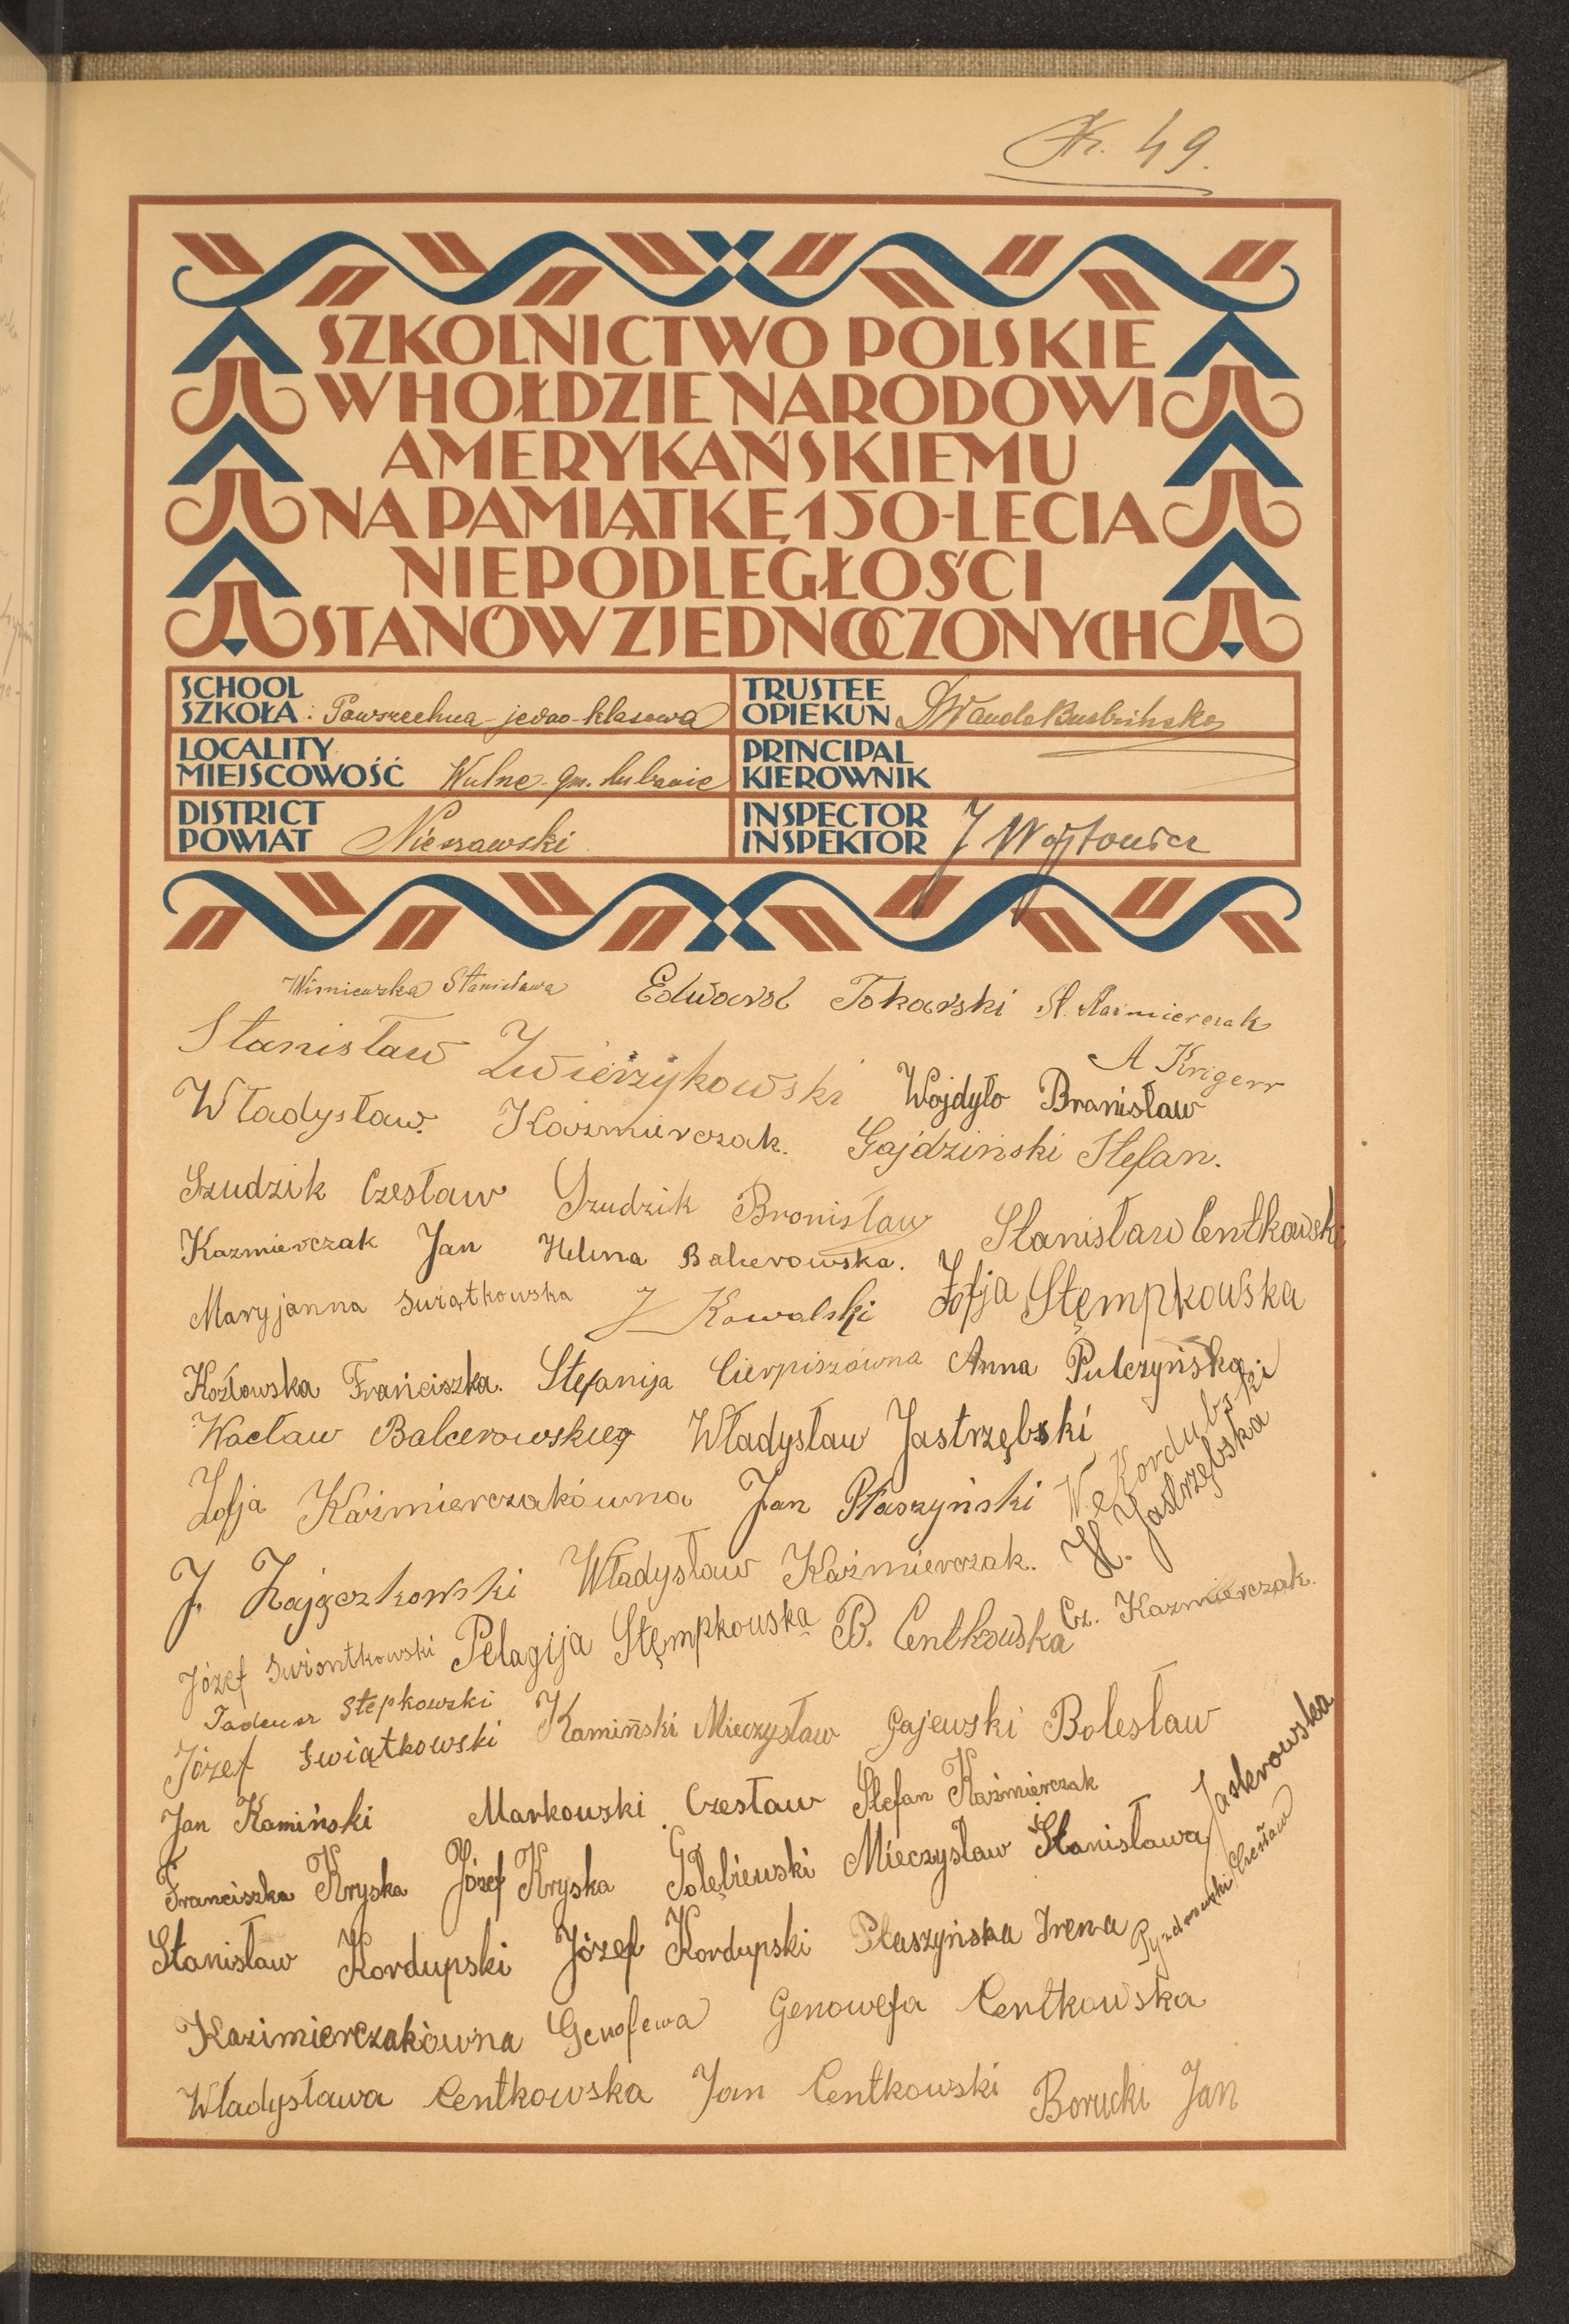 49.
SZKOLNICTWO POLSKIE
W HOŁDZIE NARODOWI
AMERYKAŃSKIEMU
NA PAMIĄTKĘ 150-LECIA
NIEPODLEGŁOŚCI
STANÓW ZJEDNOCZONYCH
SCHOOL
SZKOŁA: Powszechna jedno-klasowa
TRUSTEE
OPIEKUN Wanda
LOCALITY
MIEJSCOWOŚĆ Wulne gm. Lubanie
PRINCIPAL
KIEROWNIK
DISTRICT
POWIAT Nieszawski
INSPECTOR
INSPEKTOR J Wojtowicz
Wisniewska Stanisława Edward Tokarski St. Kazmierczak
Stanisław Zwierzykowski A Krigerr
Władysław. Kazmierczak. Wojdyło Branisław
Gajdziński Stefan.
Szudzik Czesław Szudzik Bronisław Stanisław Centkowski
Kazmierczak Jan Helena Balcerowska.
Maryjanna Swiątkowska J Kowalski Zofja Stęmpkowska
Kozłowska Franciszka. Stefanija Cierpiszówna Anna Pulczyńska
Wacław Balcerowskieg Władysław Jastrzębski
Zofja Kaźmierczakówna Jan Płaszyński W. Kordubski
H. Jastrzębska
J. Zajączkowski Władysław Kaźmierczak.
Józef Swiontkowski Pelagija Stęmpkouska B. Centkowska Cz. Kazmierczak.
Tadeusz Stepkowski
Józef Swiątkowski Kamiński Mieczysław Gajewski Bolesław
Jan Kamiński Markowski Czesław Stefan Kaźmierczak
Franciszka Kryska Józef Kryska Gołębiewski Mieczysław Stanisława Jaskrowska
Stanisław Kordupski Józef Kordupski Płaszyńska Irena Czesław
Kazimierczakówna Genofewa Genowefa Centkowska
Władysława Centkowska Jan Centkowski Borucki Jan